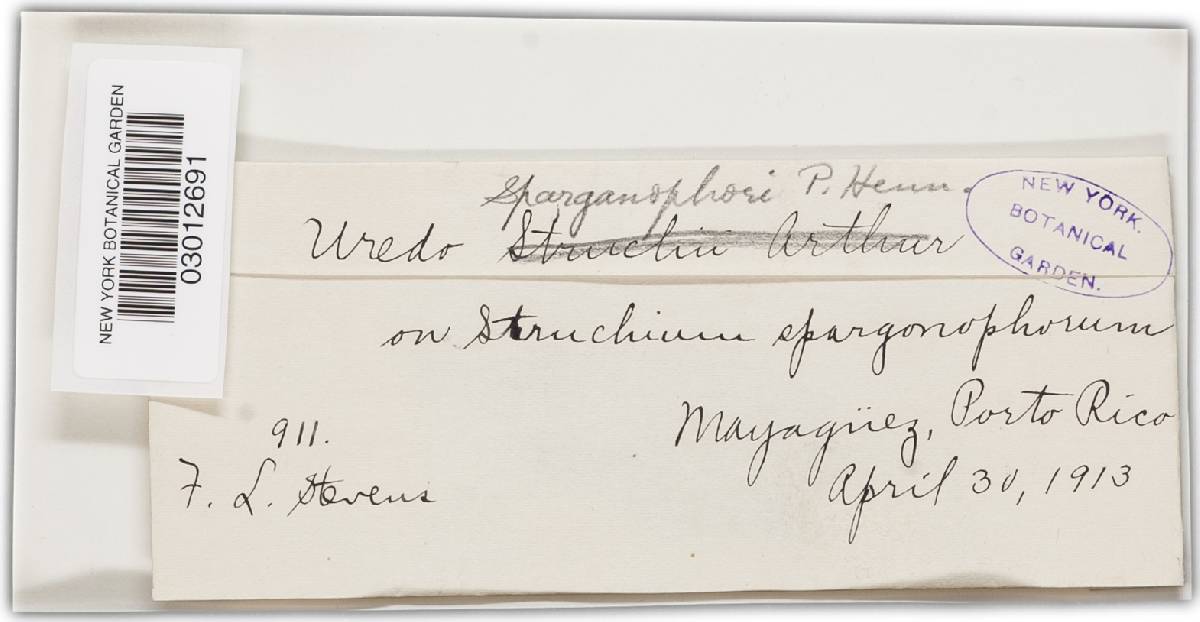 NEW YORK BOTANICAL GARDEN
03012691
Sparganophori P. Henn.
Uredo Struchii Arthur
NEW YORK.
BOTANICAL
GARDEN.
on Struchium spargonophorum
Mayagüez, Porto Rico
911.
F. L. Stevens
April 30, 1913